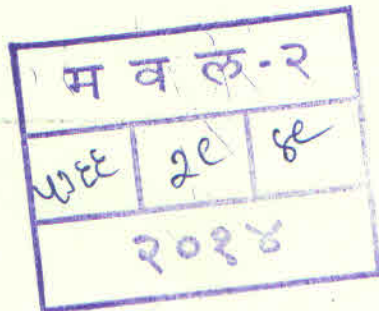 म व ल-२
५७६६ २९ ४९
२०१४